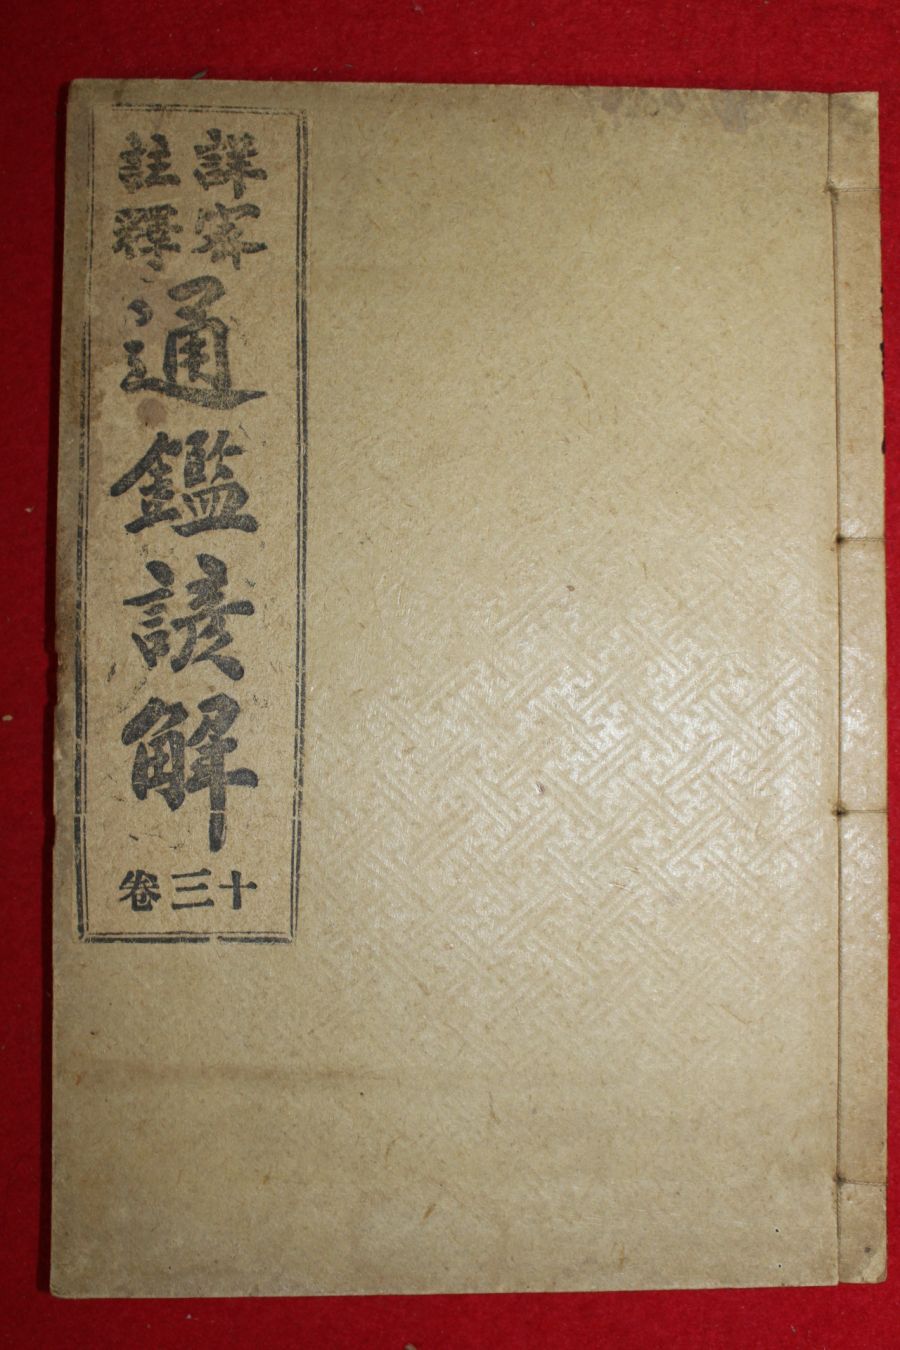 詳密
註釋
通鑑諺解
卷三十